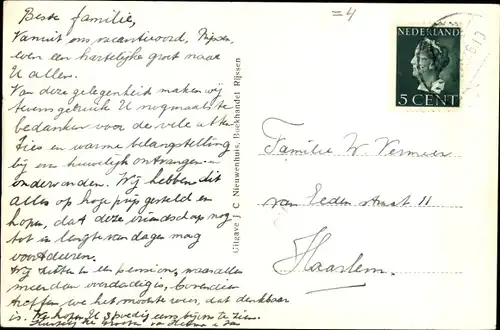 =4
Beste familie,
Vanuit ons vacantieoord, Rijssen,
even een hartelijke groet naar
U allen.
Van deze gelegenheid maken wij
tevens gebruik U nogmaals te
bedanken voor de vele atten
ties en warme belangstelling
bij ons huwelijk ontvangen en
ondervonden. Wij hebben dit
alles op hoge prijs gesteld en
hopen, dat deze vriendschap nog
tot in lengte van dagen mag
voortduren.
Wij zitten in een pension, waar alles
meer dan overdadig is, bovendien
troffen we het mooiste weer, dat denkbaar
is. We hopen U spoedig eens bij ons te zien.
Hartelijke groeten van
Uitgave: C. Nieuwenhuis, Boekhandel Rijssen
NEDERLAND
5 CENT
Familie W. Vermeer
van Eeden straat 11
Haarlem.